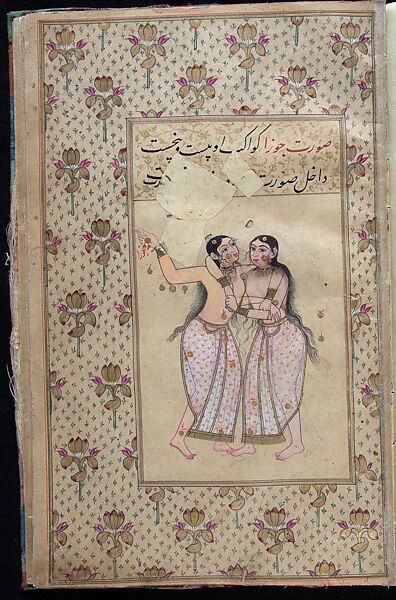 صورت جوزا کواکب او بیست پنجست
داخل صورت